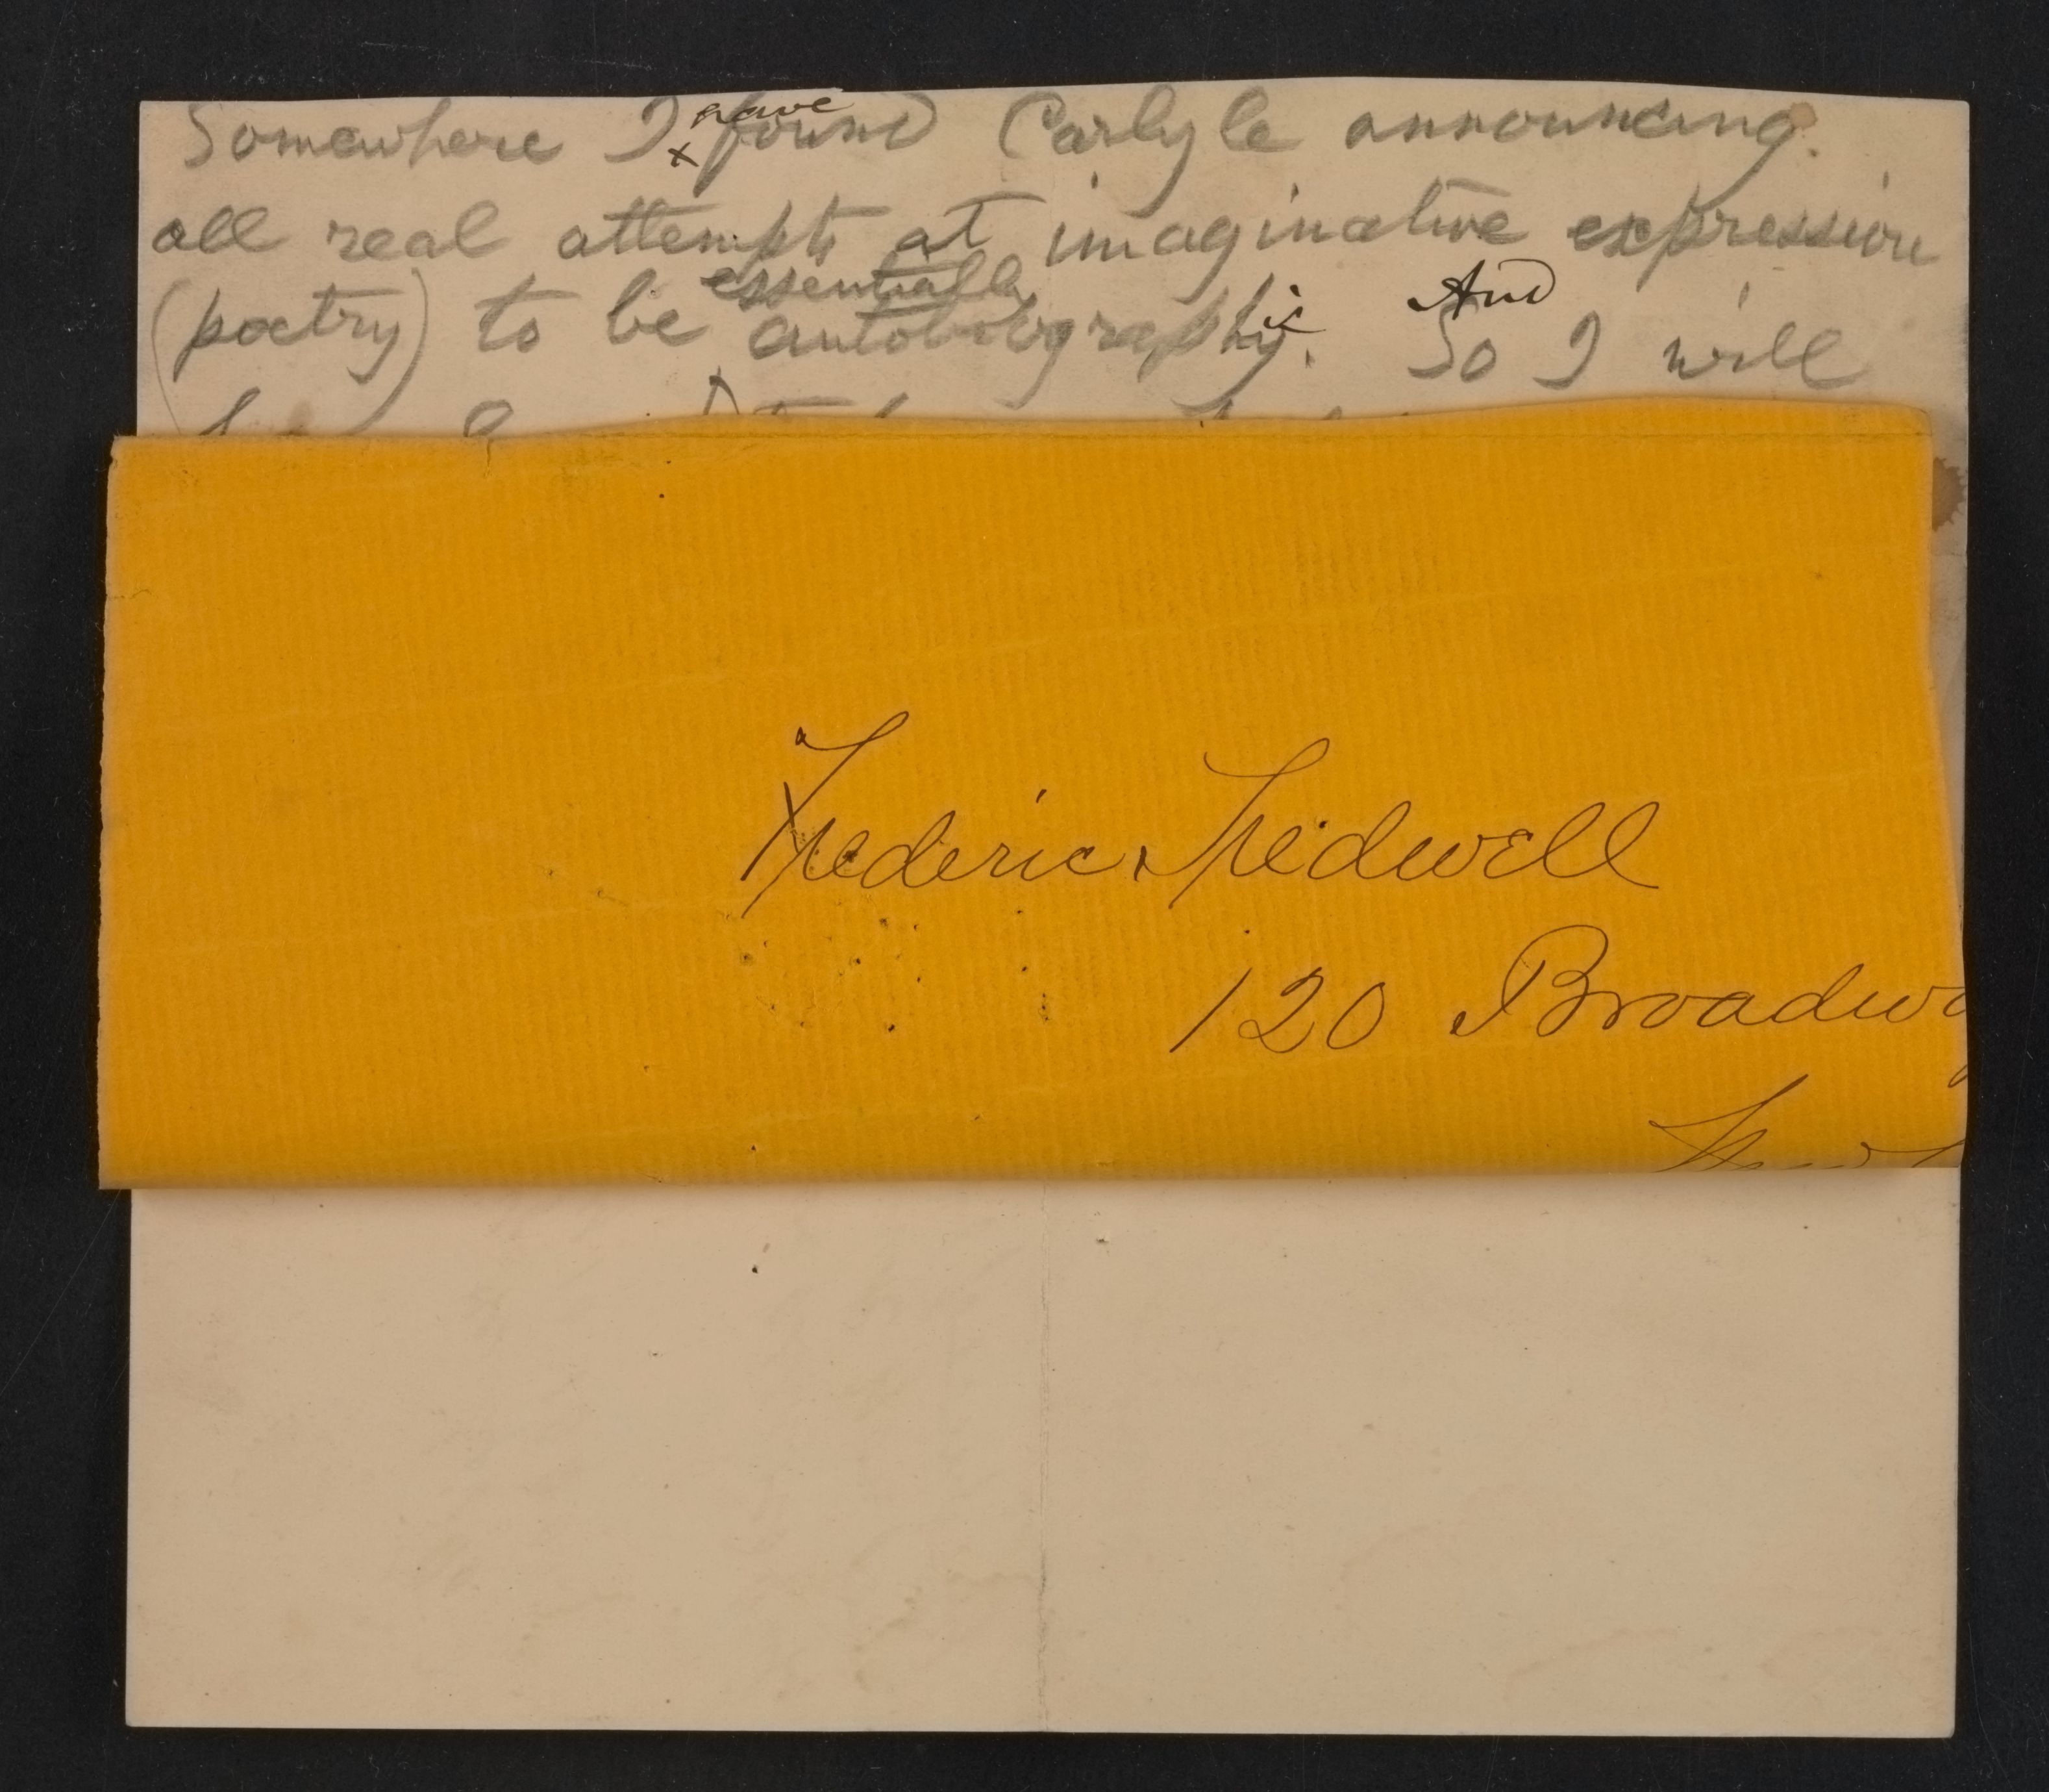 Somewhere I have found Carlyle announcing
all real attempts at imaginative expression
(poetry) to be essentially autobiographic. And So I will
Frederic Tredwell
120 Broadwa
New